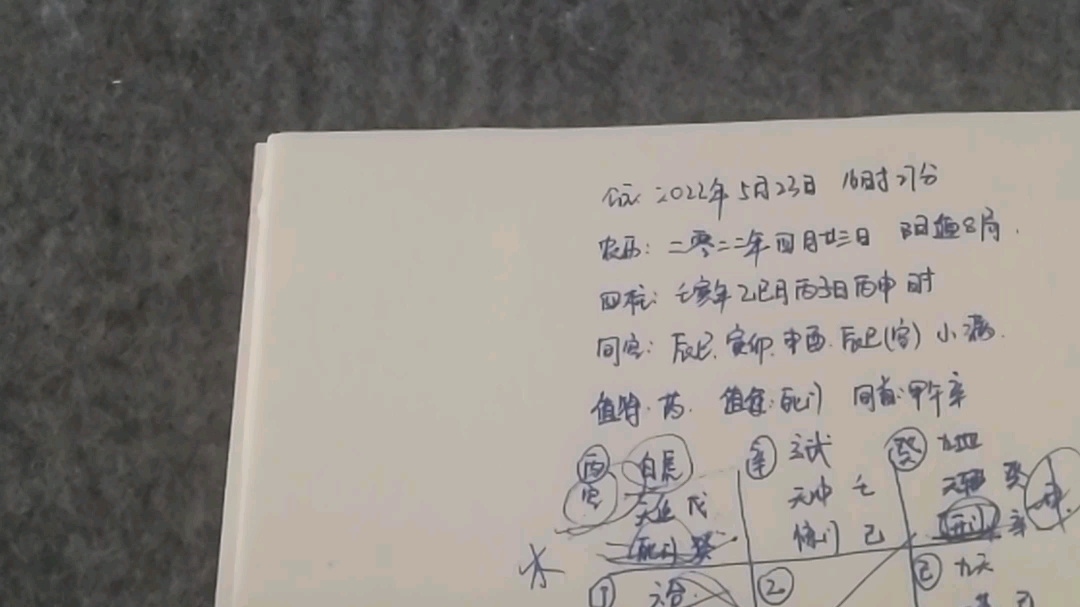 公元: 2022年 5月23日 16时27分
农历: 二零二二年四月廿三日 阳遁8局.
四柱: 壬寅年 乙巳月 丙子日 丙申时
旬空: 辰巳. 寅卯. 申酉. 辰巳(空) 小满.
值符: 芮. 值使: 死门 旬首: 甲午辛
丙 白虎 辛 玄武 癸 九地
空 戊 天冲 壬 天辅 癸
死门 癸 惊门 己 开门 辛
① 六合 ② 己 九天